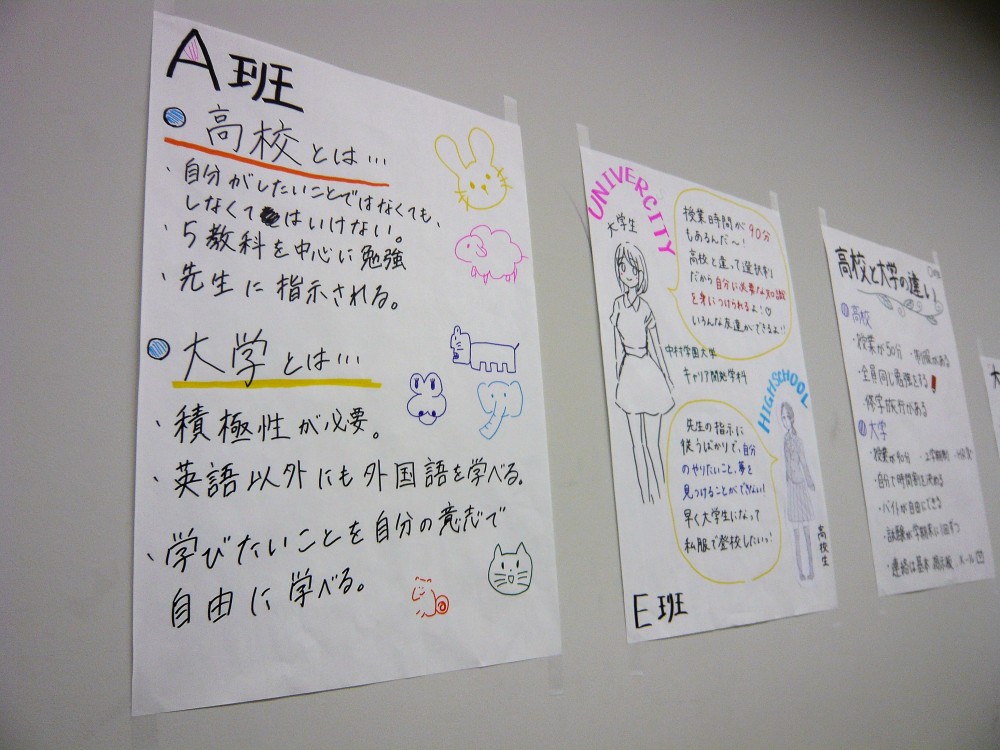 A班
高校とは…
・自分がしたいことではなくても、
しなくてはいけない。
・5教科を中心に勉強
・先生に指示される。
大学とは…
・積極性が必要。
・英語以外にも外国語を学べる。
・学びたいことを自分の意志で
自由に学べる。
UNIVERCITY
大学生
授業時間が90分
もあるんだ〜!
高校と違って選択制
だから自分に必要な知識
を身につけられるよ!♡
いろんな友達ができるよ!!
中村学園大学
キャリア開発学科
HIGHSCHOOL
先生の指示に
従うばかりで、自分
のやりたいこと、夢を
見つけることができない!
早く大学生になって
私服で登校したいっ!
高校生
E班
高校と大学の違い
高校
・授業が50分 ・制服がある
・全員同じ勉強をする!
・修学旅行がある
大学
・授業が90分 ・2学期制
・自分で時間割を決める
・バイトが自由にできる
・試験が学期末に1回ずつ
・連絡は基本 掲示板、メール